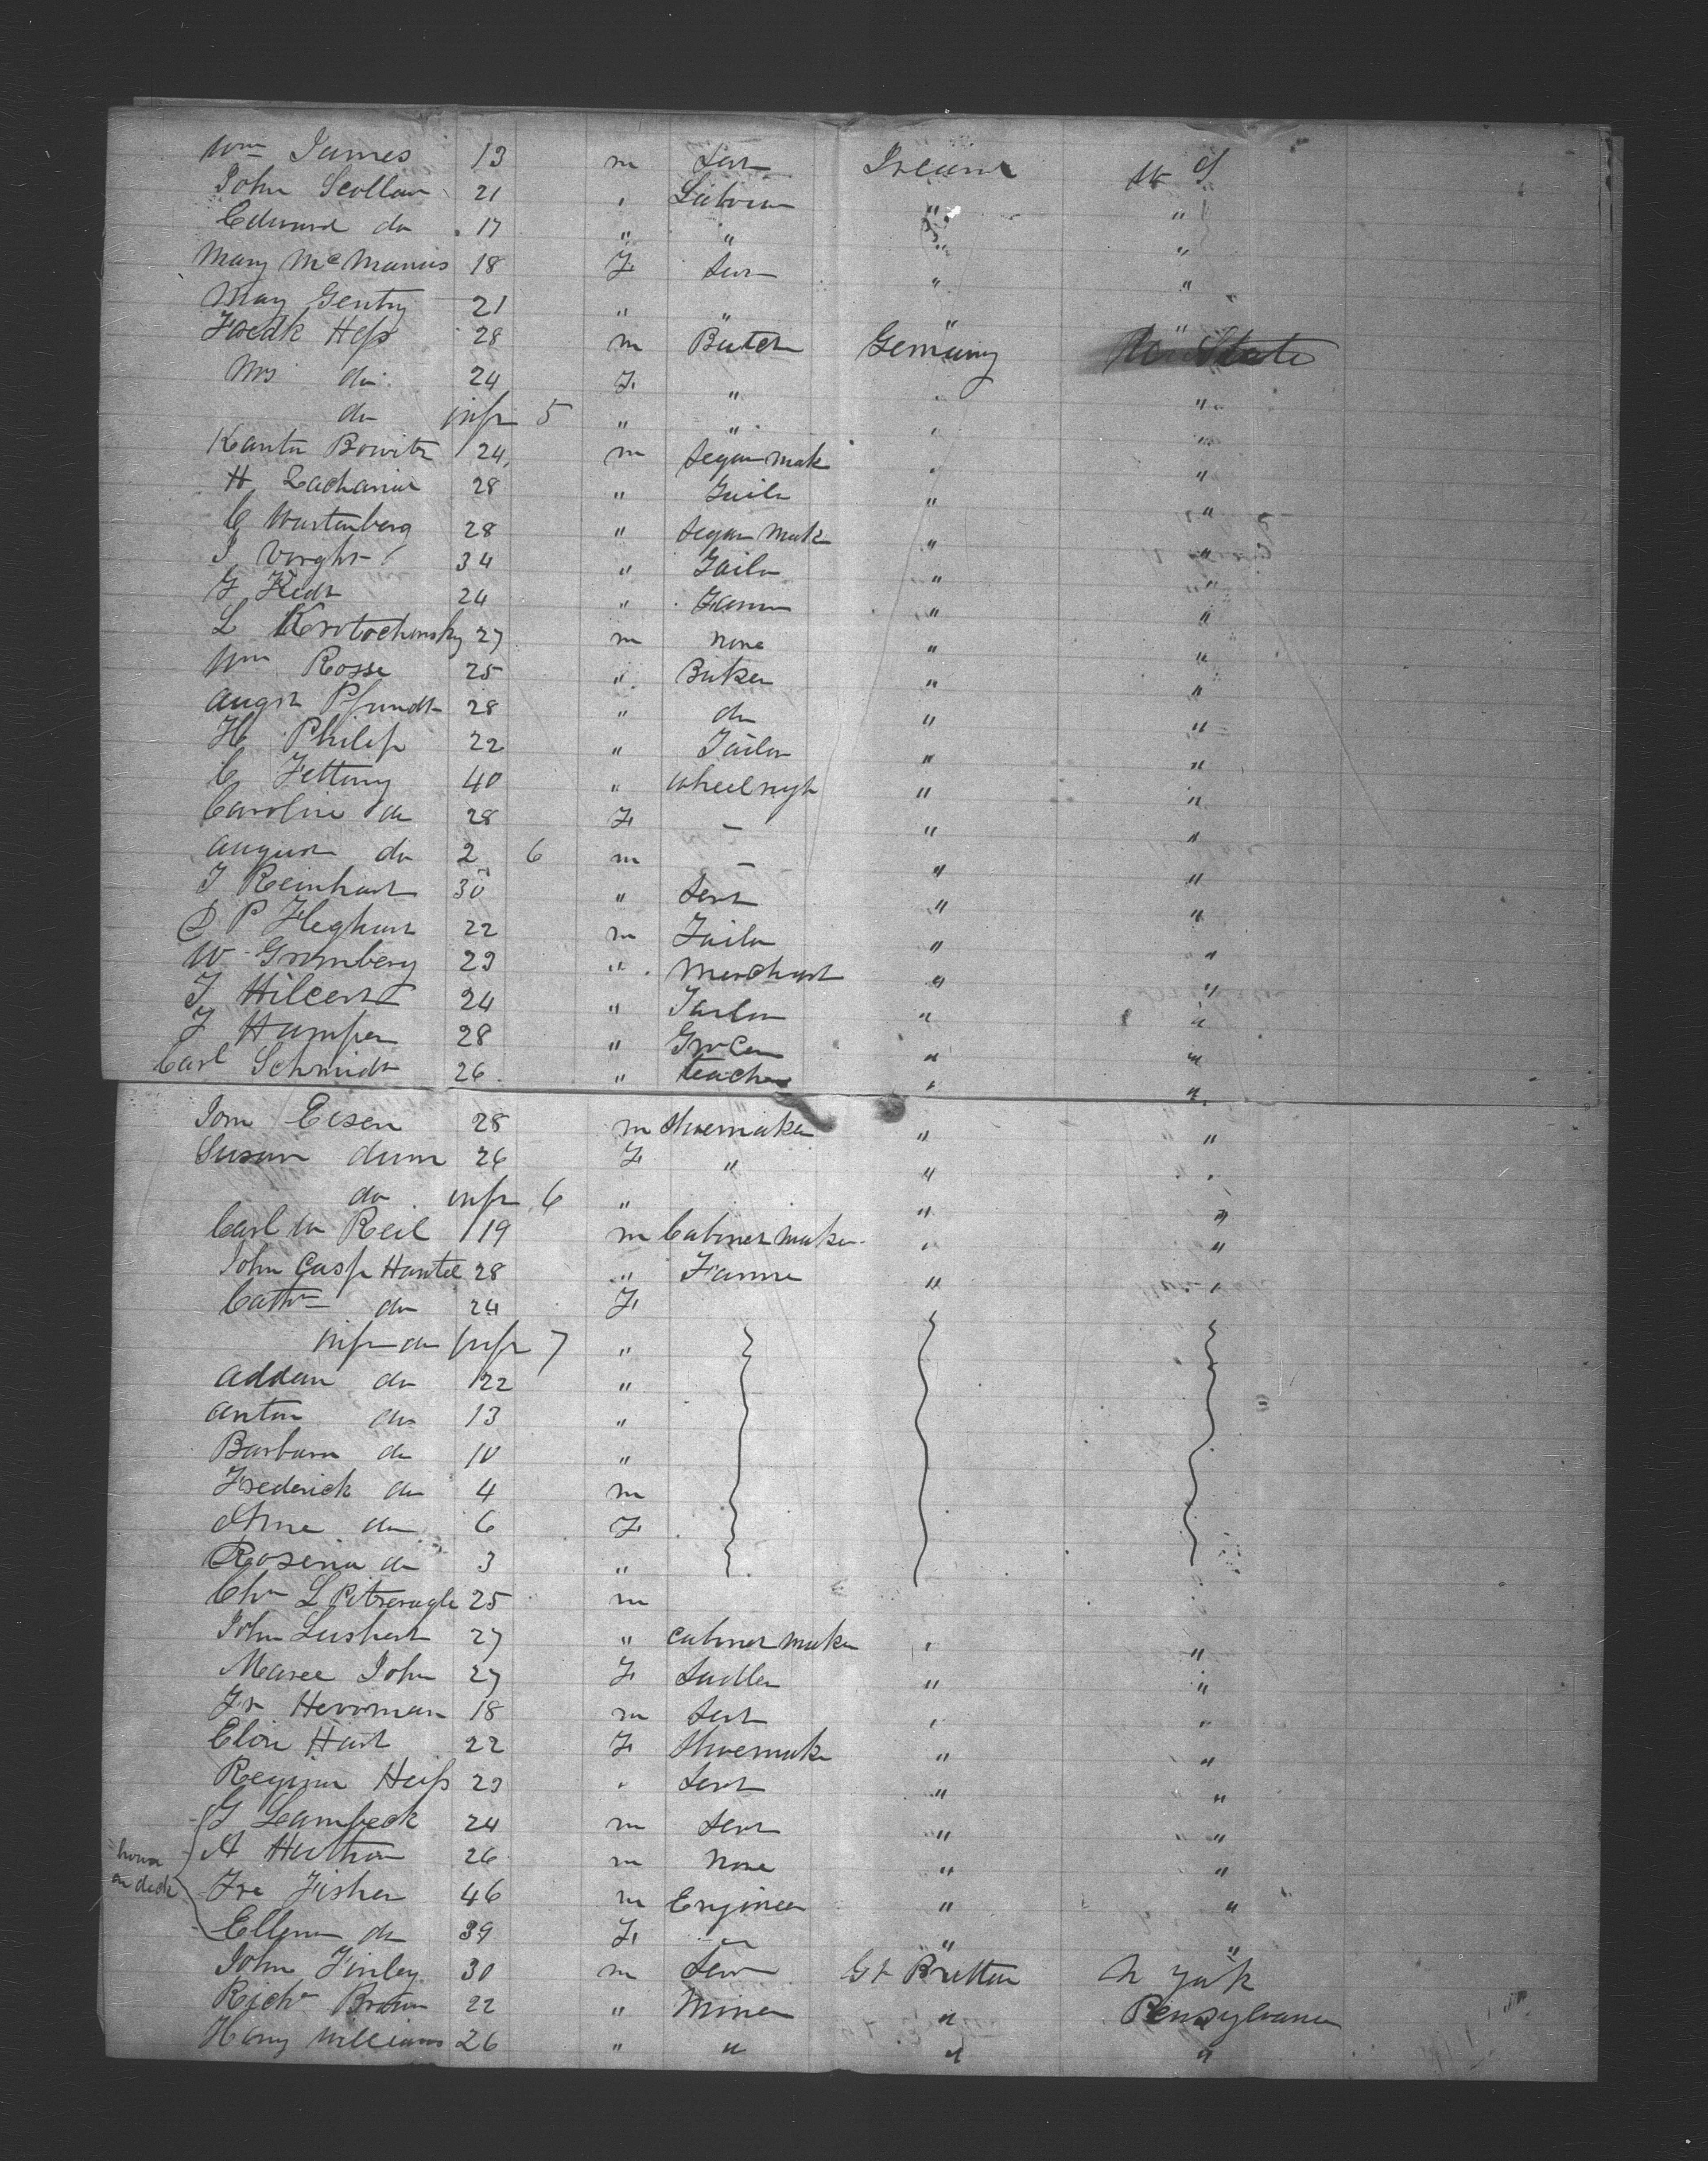 Wm James 19 m Servt Ireland U S
John Scollan 21 " Labour " "
Edward do 17 " " " "
Mary McManus 18 F Serv " "
May Gentry 21 " " " "
Fredk Hess 28 m Butch Germany U State
Mrs do 24 F " " "
do inft 5 " " " "
Bowitz 24 m Segar mak " "
H Zacharias 28 " Tailor " "
C Wartenberg 28 " Segar mak " "
J 34 " Tailor " "
F 24 " Farmer " "
L Krotochinsky 27 m none " "
Wm Rosse 25 " Baker " "
Augst Pfundt 28 " do " "
H Philip 22 " Tailor " "
C Fetting 40 " wheelrigh " "
Caroline do 28 F – " "
August do 2 6 m – " "
J Reinhart 30 " Servt " "
P Fleghart 22 m Tailor " "
W Grimberg 29 " Merchant " "
J Hilcert 24 " Tailor " "
J Hamper 28 " Grocer " "
Carl Schmidt 26 " teacher " "
Eisen 28 m Shoemaker " "
Susan 26 F " " "
do inft 6 " " "
Carl W Reil 19 m Cabinet maker " "
John Casp Hantel 28 " Farmer " "
Cathn do 24 F
inft do inft 7 "
Addam do 22 "
Anton do 13 "
Barbara do 10 "
Frederick do 4 m
Anna do 6 F
Rosena do 3 "
Chn L 25 m
John 27 " Cabinet maker " "
Maree John 27 F Sadler " "
Fr Herrman 18 m Servt " "
Hart 22 F Shoemak " "
Regina Heiss 29 " Servt " "
G Lambeck 24 m Servt " "
A 26 m None " "
on deck
Fre Fisher 46 m Engineer " "
Ellen do 39 F " " "
John Finley 30 m Serv Gt Brittan N York
Richd Brown 22 " Miner " Pensylvania
Harry Williams 26 " " " "